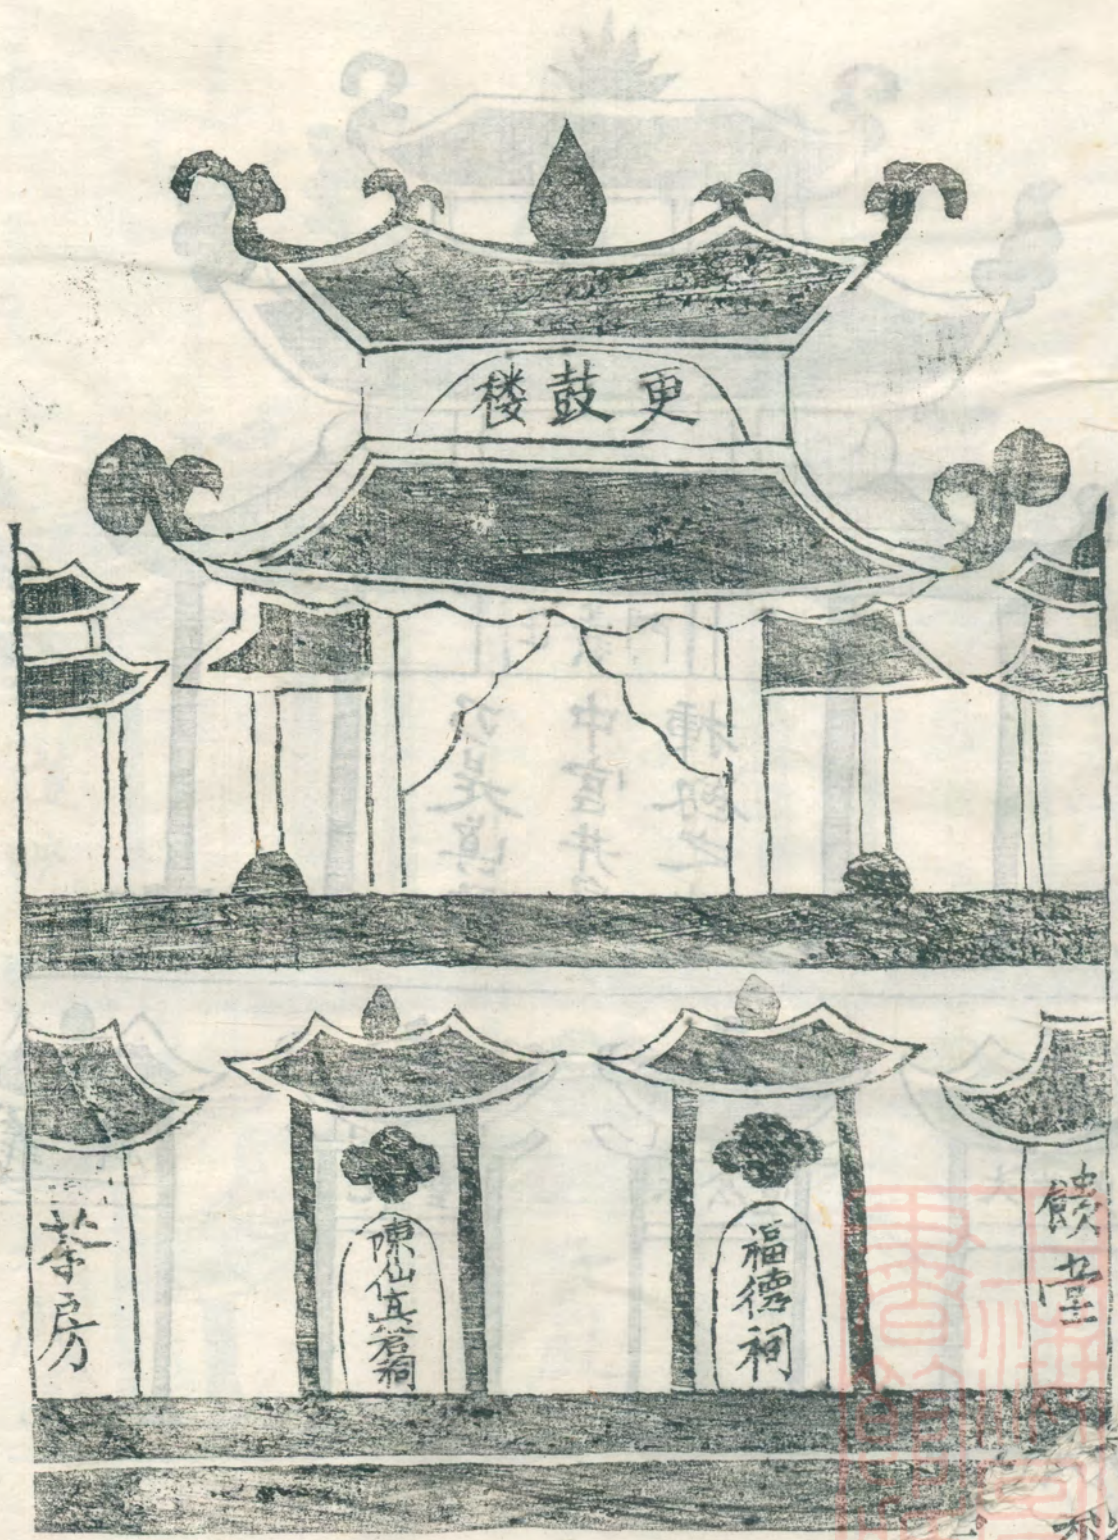 更鼓楼
饋堂
福德祠
陳仙真君祠
茶房